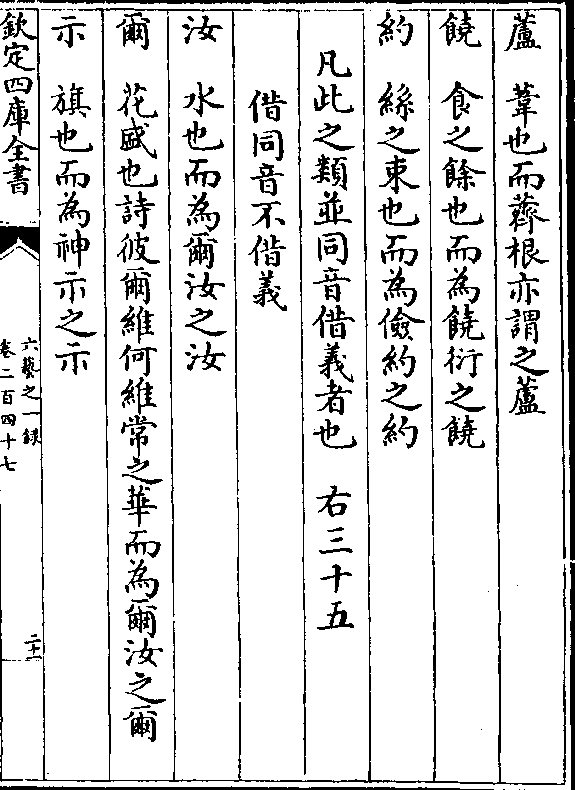 蘆　葦也而薺根亦謂之蘆
饒　食之餘也而為饒衍之饒
約　絲之束也而為儉約之約
凡此之類並同音借義者也　右三十五
借同音不借義
汝　水也而為爾汝之汝
爾　花盛也詩彼爾維何維常之華而為爾汝之爾
示　旗也而為神示之示
欽定四庫全書
六藝之一録
卷二百四十七
二十一